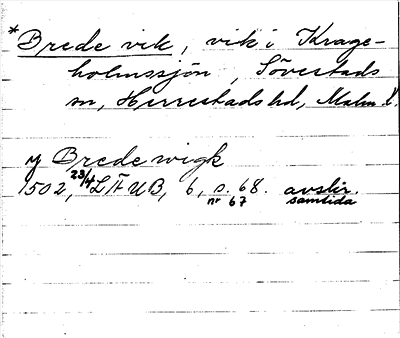 *Brede vik, vik i Krage-
holmssjön, Sövestads
sn, Herrestads hd, Malm. l.
y Brede wigk
1502, 23/4 LÄUB, 6, s. 68. avskr.
nr 67 samtida